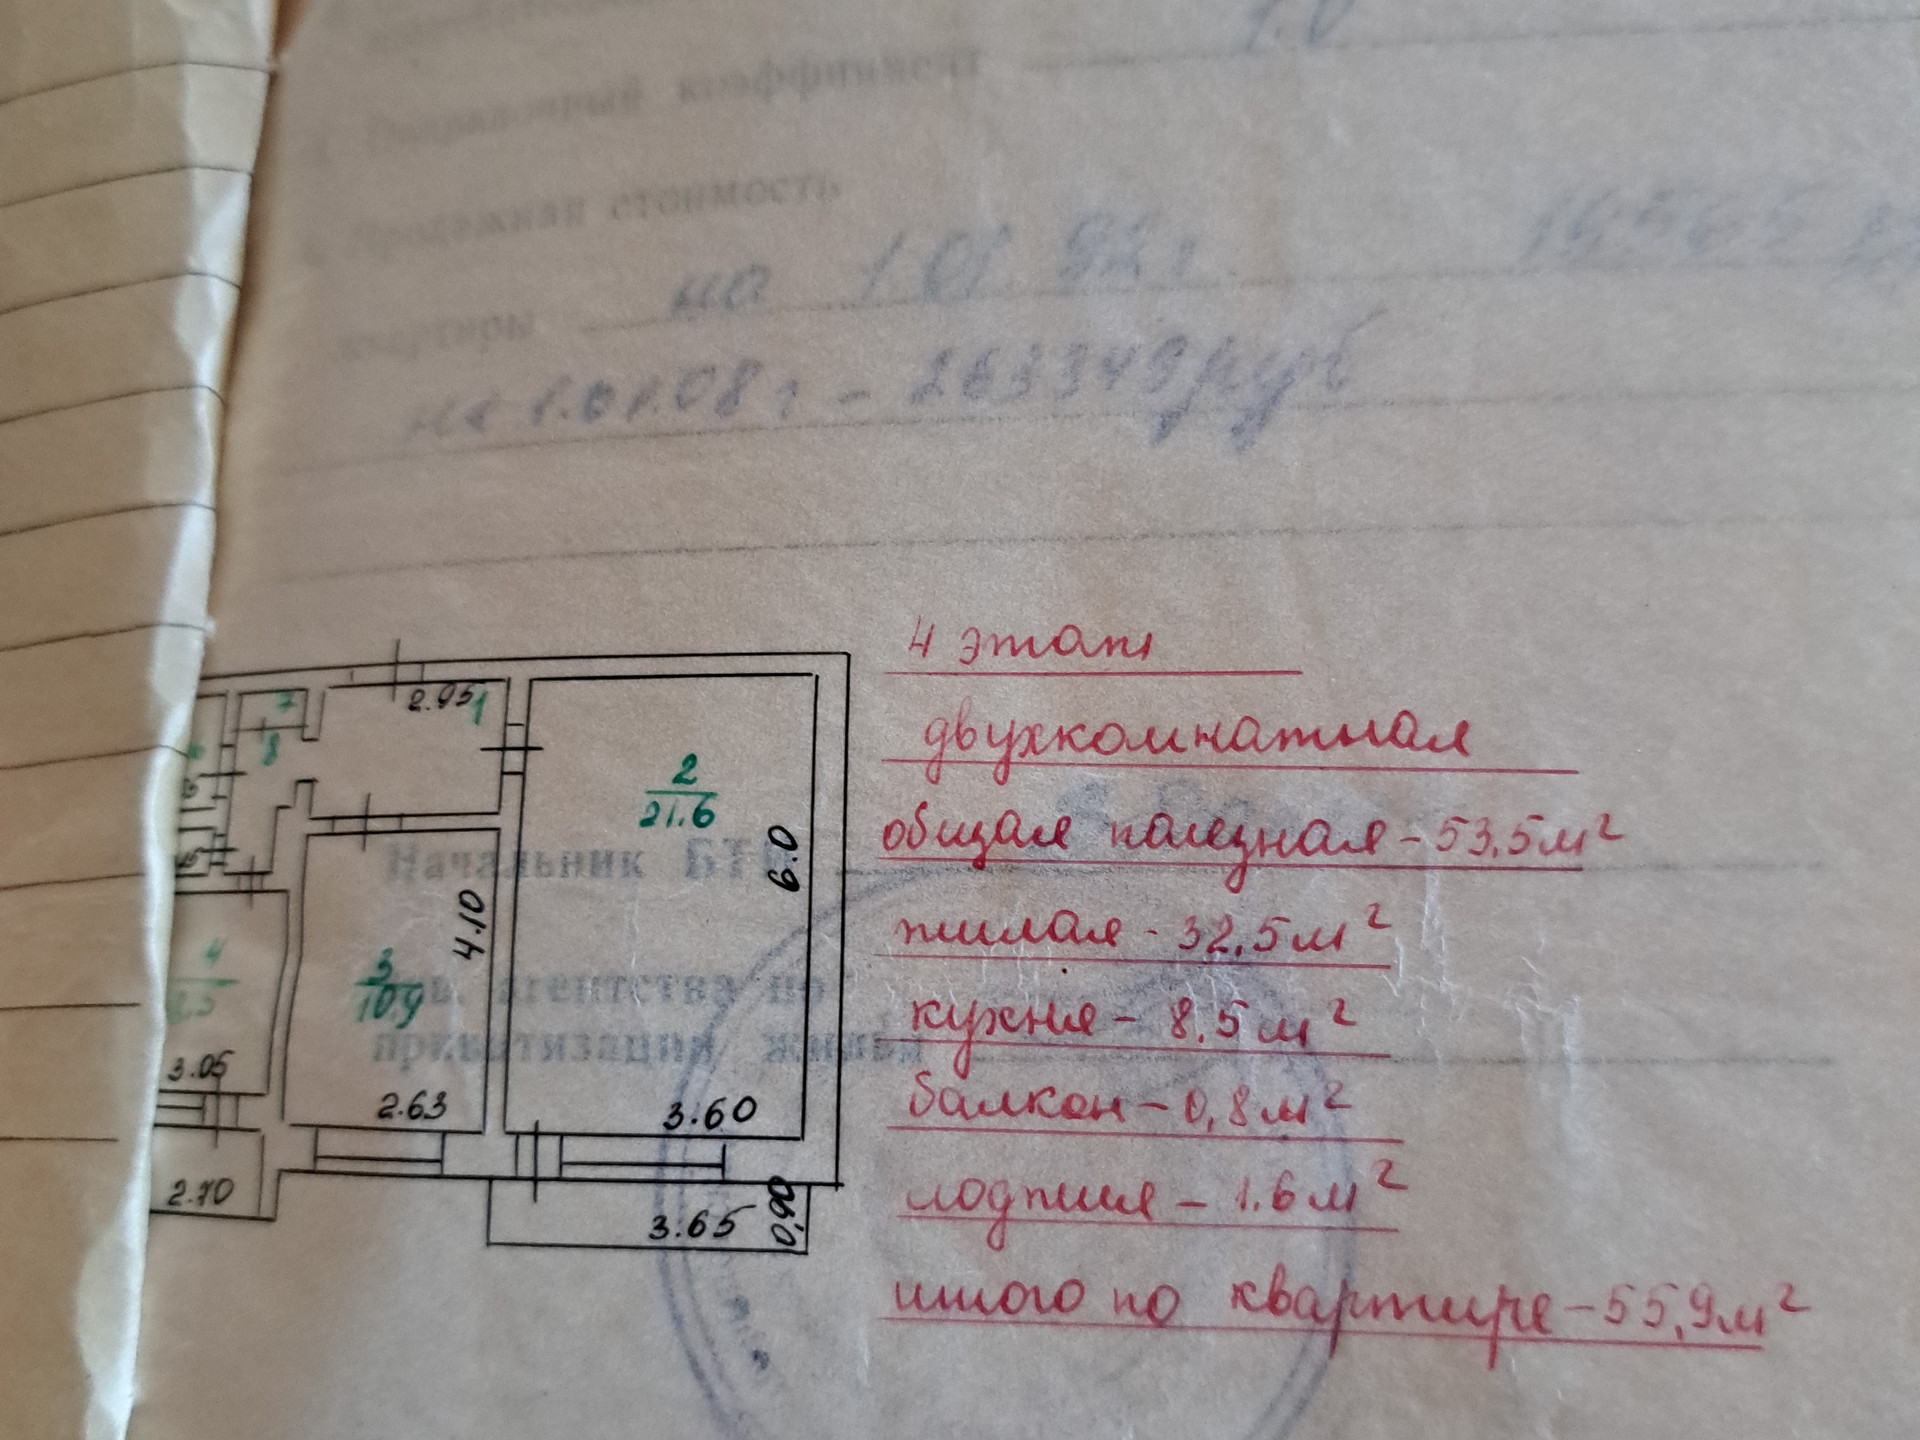 1.0
коэффициент
Продажная стоимость
квартиры на 1 01 92 г
на 1.01.08 г - 263349 руб
4 этаж
двухкомнатная
общая полезная - 53,5 м²
жилая - 32,5 м²
кухня - 8,5 м²
балкон - 0,8 м²
лоджия - 1.6 м²
итого по квартире - 55,9 м²
2.95 1
7
8
2
21.6
6.0
Начальник БТИ
4.10
3
10.9
4
8.5
агентства по
приватизации жилья
3.05
2.63
3.60
2.70
3.65
0,90